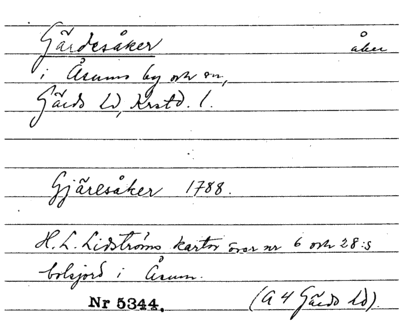 Gärdesåker åker
i Åsums by och sn,
Gärds hd, Krstd. l.
Gjäresåker 1788.
H. L. Lidströms kartor över nr 6 och 28:s
bolsjord i Åsum.
Nr 5344. (A 4 Gärds hd).